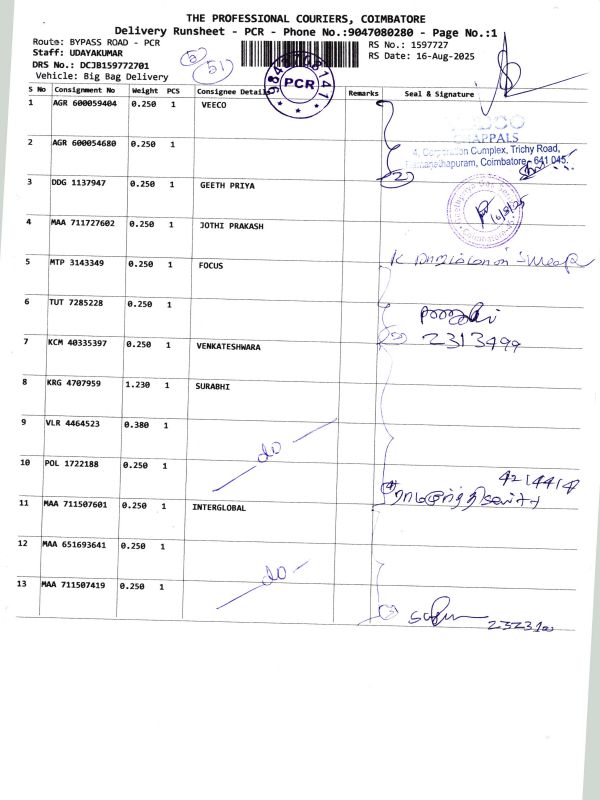 THE PROFESSIONAL COURIERS, COIMBATORE
Delivery Runsheet - PCR - Phone No.:9047080280 - Page No.:1
Route: BYPASS ROAD - PCR
RS No.: 1597727
Staff: UDAYAKUMAR
RS Date: 16-Aug-2025
DRS No.: DCJB159772701
Vehicle: Big Bag Delivery
51
PCR
S No Consignment No Weight PCS Consignee Details Remarks Seal & Signature
1 AGR 600059404 0.250 1 VEECO
CHAPPALS
4, Corporation Complex, Trichy Road,
Ramanathapuram, Coimbatore - 641 045.
2 AGR 600054680 0.250 1
2
3 DDG 1137947 0.250 1 GEETH PRIYA
4 MAA 711727602 0.250 1 JOTHI PRAKASH
5 MTP 3143349 0.250 1 FOCUS
6 TUT 7285228 0.250 1
2313499
7 KCM 40335397 0.250 1 VENKATESHWARA
8 KRG 4707959 1.230 1 SURABHI
9 VLR 4464523 0.380 1
do
10 POL 1722188 0.250 1
11 MAA 711507601 0.250 1 INTERGLOBAL
12 MAA 651693641 0.250 1
do
13 MAA 711507419 0.250 1